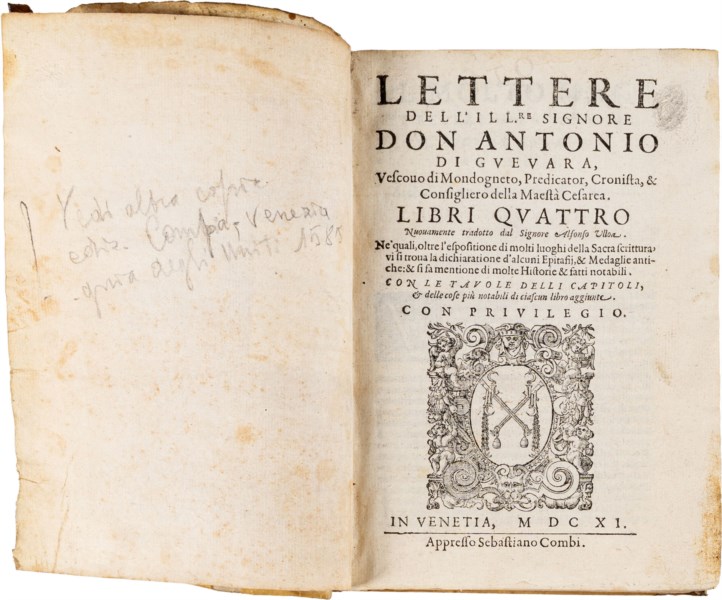 Vedi altra copia
ediz. Compa, Venezia
degli Uniti 1585
LETTERE
DELL'ILL.RE SIGNORE
DON ANTONIO
DI GVEVARA,
Vescouo di Mondogneto, Predicator, Cronista, &
Consigliero della Maestà Cesarea.
LIBRI QVATTRO
Nuouamente tradotto dal Signore Alfonso Vlloa.
Ne'quali, oltre l'espositione di molti luoghi della Sacra scrittura,
vi si troua la dichiaratione d'alcuni Epitafij, & Medaglie anti-
che: & si fa mentione di molte Historie & fatti notabili.
CON LE TAVOLE DELLI CAPITOLI,
& delle cose più notabili di ciascun libro aggiunte.
CON PRIVILEGIO.
IN VENETIA, M DC XI.
Appresso Sebastiano Combi.